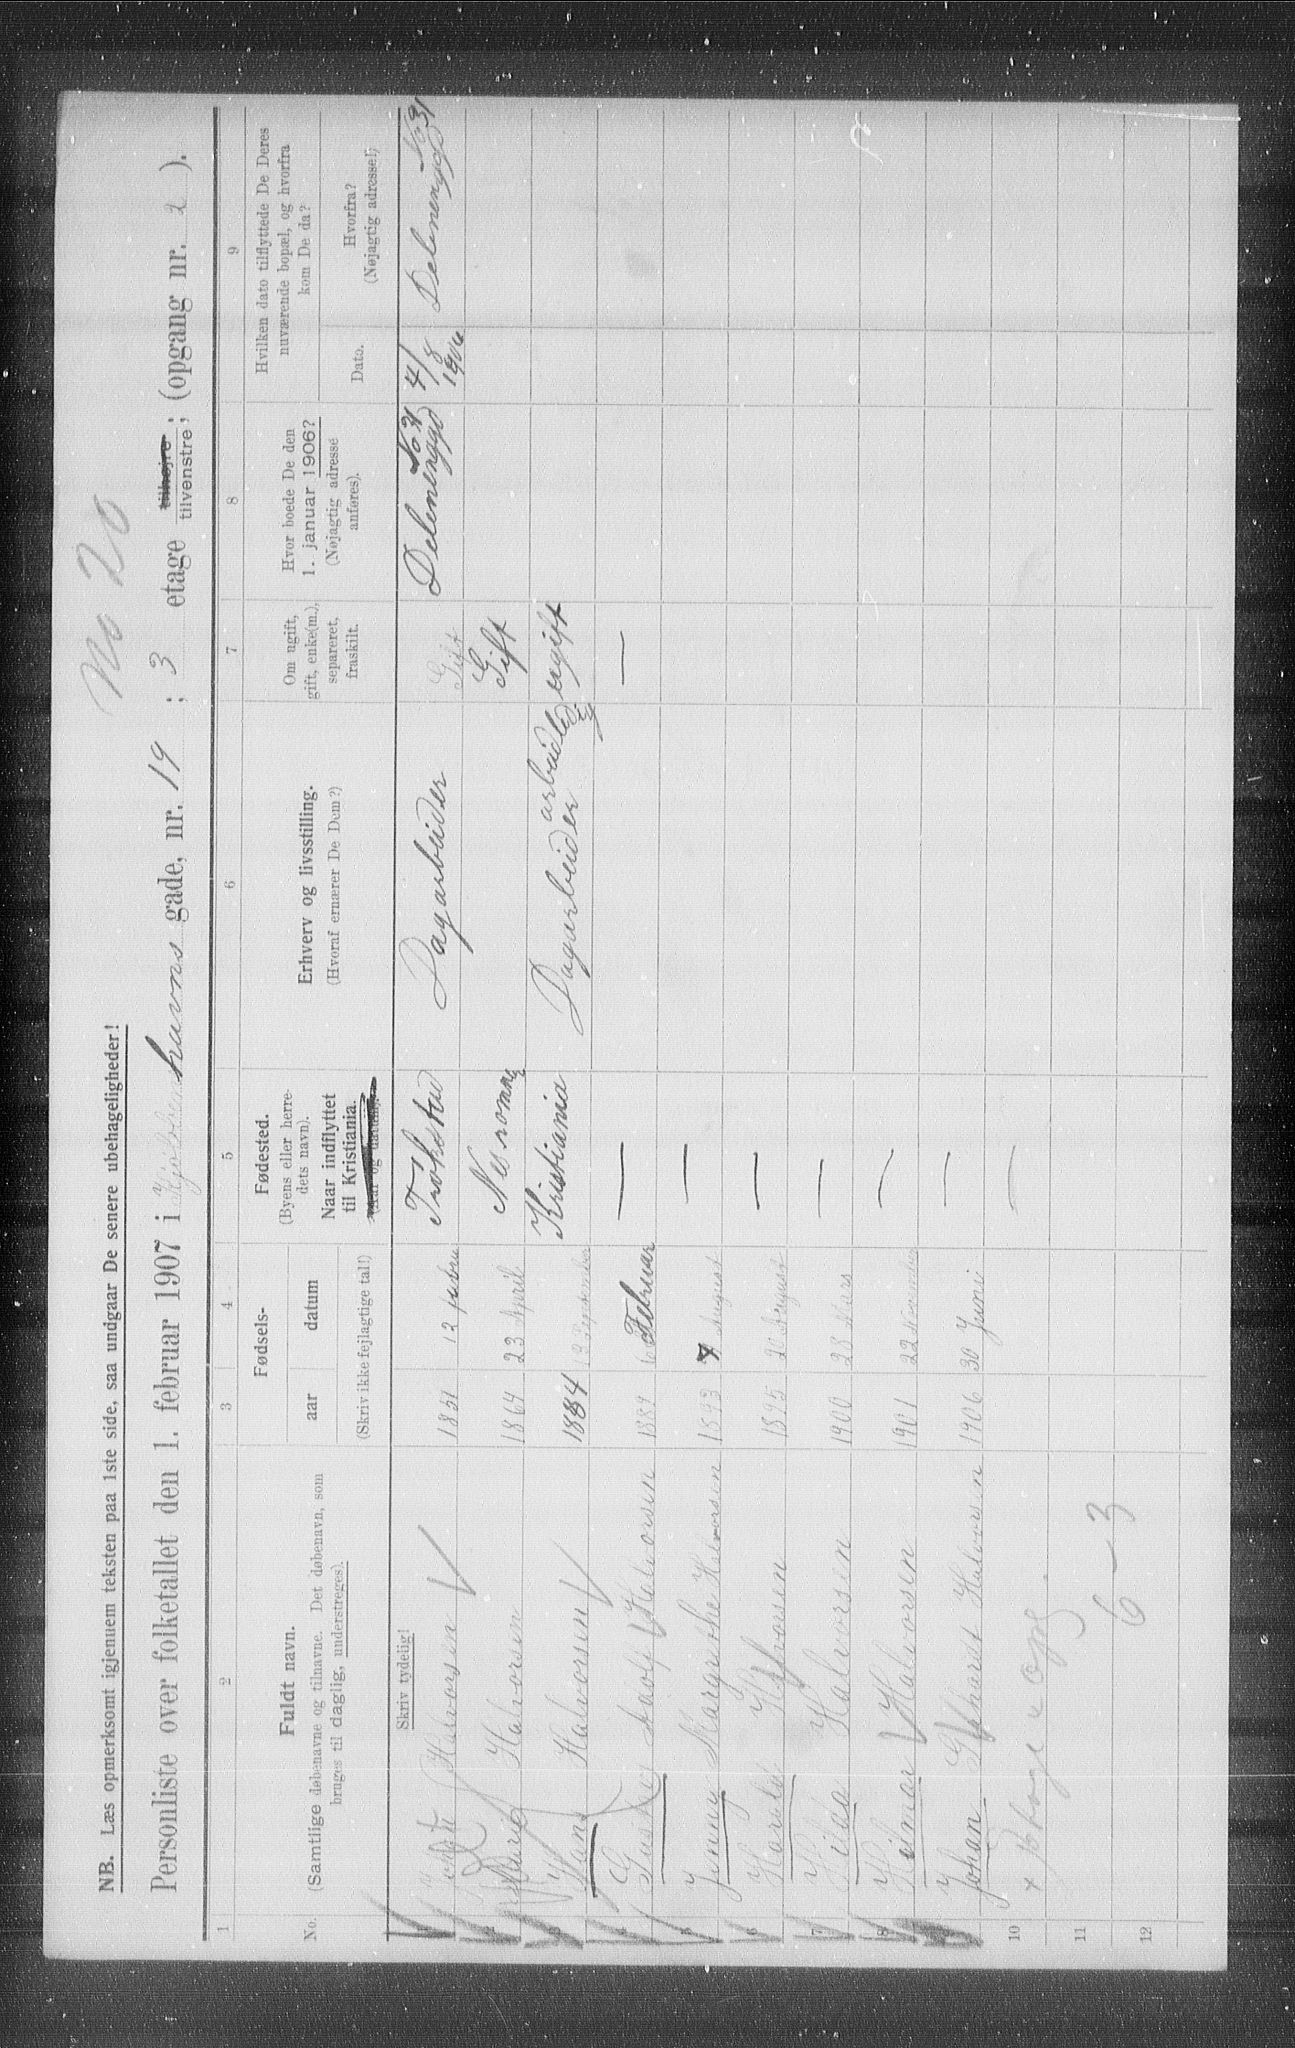 No 20
NB. Læs opmerksomt igjennem teksten paa 1ste side, saa undgaar De senere ubehageligheder!
Personliste over folketallet den 1. februar 1907 i Kjøbenhavns gade, nr. 19 ; 3 etage tilhøjre, tilvenstre; (opgang nr. 2 ).
1 2 3 4 5 6 7 8 9
No.
Fuldt navn.
(Samtlige døbenavne og tilnavne. Det døbenavn, som
bruges til daglig, understreges).
Fødsels-
aar datum
(Skriv ikke fejlagtige tal!)
Fødested.
(Byens eller herre-
dets navn).
Naar indflyttet
til Kristiania.
(Aar og datum).
Erhverv og livsstilling.
(Hvoraf ernærer De Dem?)
Om ugift,
gift, enke(m.),
separeret,
fraskilt.
Hvor boede De den
1. januar 1906?
(Nøjagtig adresse
anføres).
Hvilken dato tilflyttede De Deres
nuværende bopæl, og hvorfra
kom De da?
Dato.
Hvorfra?
(Nøjagtig adresse!)
Skriv tydelig!
1 Halvorsen 1851 12 Trøkstad Dagarbeider Gift No 31 4/8 1906 No 31
2 Marie Halvorsen 1864 23 April Gift
3 Hans Halvorsen 1884 13 September Kristiania Dagarbeider arbeidsledig ugift
4 Gustav Adolf Halvorsen 1889 6 Februar — —
5 Jenny Margrethe Halvorsen 1893 7 August —
6 Harald Halvorsen 1895 20 August —
7 Hilda Halvorsen 1900 28 Mars —
8 Hilmar Halvorsen 1901 22 —
9 Johan Halvorsen 1906 30 Juni —
10 —
11
12
6 – 3